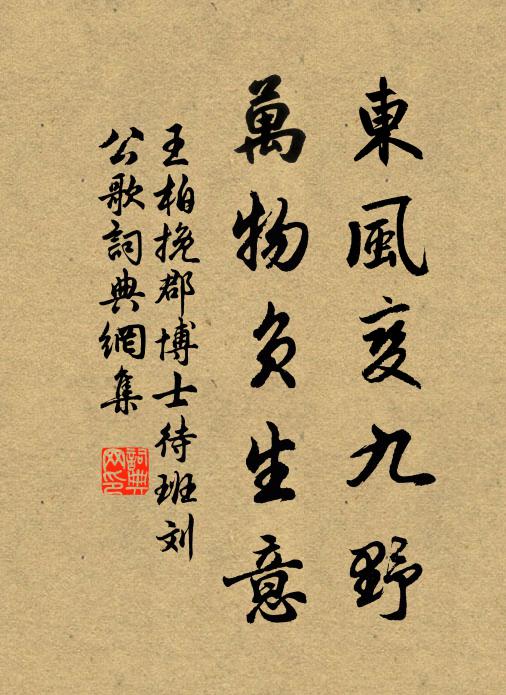 東風变九野
萬物负生意
王柏挽郡博士待班刘
公歌詞典網集
詞典网印